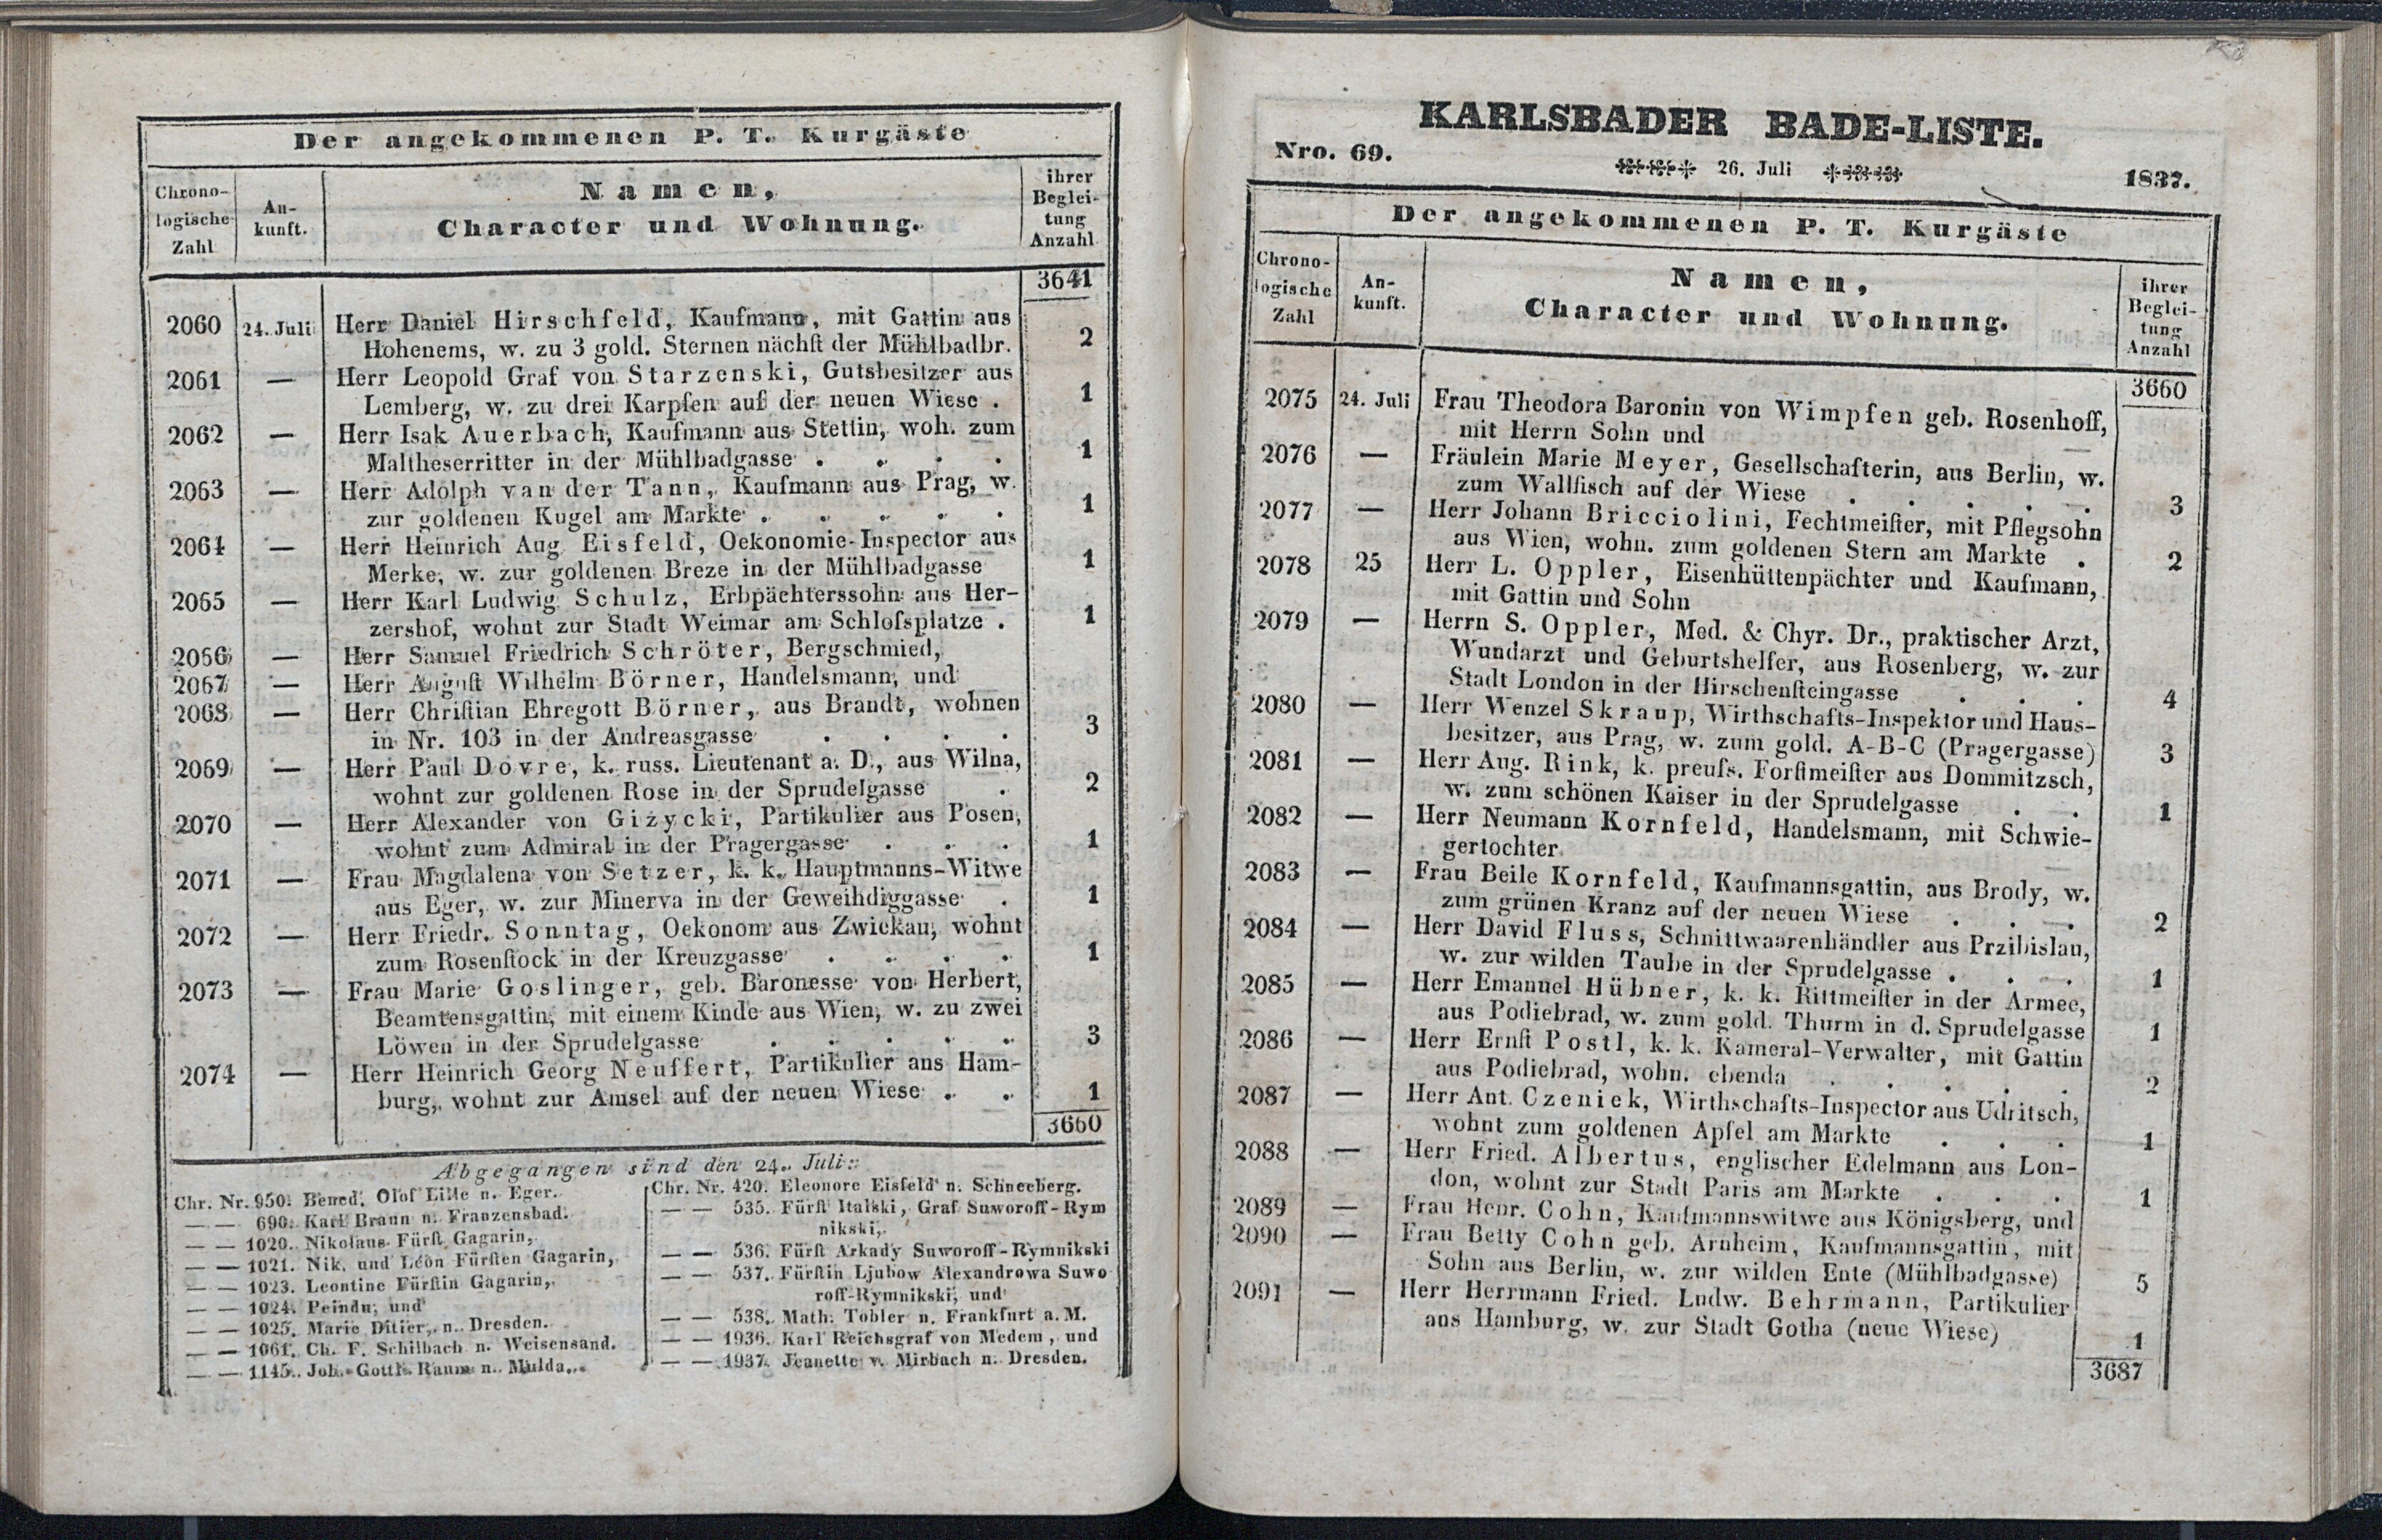 Der angekommenen P. T. Kurgäste
Chrono-
logische
Zahl
An-
kunft.
Namen,
Character und Wohnung.
ihrer
Beglei-
tung
Anzahl
3641
2060 24. Juli Herr Daniel Hirschfeld, Kaufmann, mit Gattin aus
Hohenems, w. zu 3 gold. Sternen nächst der Mühlbadbr. 2
2061 — Herr Leopold Graf von Starzenski, Gutsbesitzer aus
Lemberg, w. zu drei Karpfen auf der neuen Wiese . 1
2062 — Herr Isak Auerbach, Kaufmann aus Stettin, woh. zum
Maltheserritter in der Mühlbadgasse . . . . 1
2063 — Herr Adolph van der Tann, Kaufmann aus Prag, w.
zur goldenen Kugel am Markte . . . . . 1
2064 — Herr Heinrich Aug. Eisfeld, Oekonomie-Inspector aus
Merke, w. zur goldenen Breze in der Mühlbadgasse 1
2065 — Herr Karl Ludwig Schulz, Erbpächterssohn aus Her-
zershof, wohnt zur Stadt Weimar am Schlofsplatze . 1
2066 — Herr Samuel Friedrich Schröter, Bergschmied,
2067 — Herr August Wilhelm Börner, Handelsmann, und
2068 — Herr Christian Ehregott Börner, aus Brandt, wohnen
in Nr. 103 in der Andreasgasse . . . . 3
2069 — Herr Paul Dovre, k. russ. Lieutenant a. D., aus Wilna,
wohnt zur goldenen Rose in der Sprudelgasse . 2
2070 — Herr Alexander von Giżycki, Partikulier aus Posen,
wohnt zum Admiral in der Pragergasse . . . 1
2071 — Frau Magdalena von Setzer, k. k. Hauptmanns-Witwe
aus Eger, w. zur Minerva in der Geweihdiggasse . 1
2072 — Herr Friedr. Sonntag, Oekonom aus Zwickau, wohnt
zum Rosenstock in der Kreuzgasse . . . . 1
2073 — Frau Marie Goslinger, geb. Baronesse von Herbert,
Beamtensgattin, mit einem Kinde aus Wien, w. zu zwei
Löwen in der Sprudelgasse . . . . . 3
2074 — Herr Heinrich Georg Neuffert, Partikulier aus Ham-
burg, wohnt zur Amsel auf der neuen Wiese . . 1
3660
Abgegangen sind den 24. Juli:
Chr. Nr. 950. Bened. Olof Lille n. Eger.
— — 690. Karl Braun n. Franzensbad.
— — 1020. Nikolaus Fürst Gagarin,
— — 1021. Nik. und Léon Fürsten Gagarin,
— — 1023. Leontine Fürstin Gagarin,
— — 1024. Peindu, und
— — 1025. Marie Ditier, n. Dresden.
— — 1061. Ch. F. Schilbach n. Weisensand.
— — 1145. Joh. Gottl. Raum n. Mulda.
Chr. Nr. 420. Eleonore Eisfeld n. Schneeberg.
— — 535. Fürst Italski, Graf Suworoff-Rym
nikski,
— — 536. Fürst Arkady Suworoff-Rymnikski
— — 537. Fürstin Ljubow Alexandrowa Suwo
roff-Rymnikski, und
— — 538. Math. Tobler n. Frankfurt a. M.
— — 1936. Karl Reichsgraf von Medem, und
— — 1937. Jeanette v. Mirbach n. Dresden.
KARLSBADER BADE-LISTE.
Nro. 69. 26. Juli 1837.
Der angekommenen P. T. Kurgäste
Chrono-
logische
Zahl
An-
kunft.
Namen,
Character und Wohnung.
ihrer
Beglei-
tung
Anzahl
3660
2075 24. Juli Frau Theodora Baronin von Wimpfen geb. Rosenhoff,
mit Herrn Sohn und
2076 — Fräulein Marie Meyer, Gesellschafterin, aus Berlin, w.
zum Wallfisch auf der Wiese . . . . . 3
2077 — Herr Johann Bricciolini, Fechtmeister, mit Pflegsohn
aus Wien, wohn. zum goldenen Stern am Markte . 2
2078 25 Herr L. Oppler, Eisenhüttenpächter und Kaufmann,
mit Gattin und Sohn
2079 — Herrn S. Oppler, Med. & Chyr. Dr., praktischer Arzt,
Wundarzt und Geburtshelfer, aus Rosenberg, w. zur
Stadt London in der Hirschensteingasse . . . 4
2080 — Herr Wenzel Skraup, Wirthschafts-Inspektor und Haus-
besitzer, aus Prag, w. zum gold. A-B-C (Pragergasse) 3
2081 — Herr Aug. Rink, k. preufs. Forstmeister aus Dommitzsch,
w. zum schönen Kaiser in der Sprudelgasse . . 1
2082 — Herr Neumann Kornfeld, Handelsmann, mit Schwie-
gertochter
2083 — Frau Beile Kornfeld, Kaufmannsgattin, aus Brody, w.
zum grünen Kranz auf der neuen Wiese . . . 2
2084 — Herr David Fluss, Schnittwaarenhändler aus Przibislau,
w. zur wilden Taube in der Sprudelgasse . . . 1
2085 — Herr Emanuel Hübner, k. k. Rittmeister in der Armee,
aus Podiebrad, w. zum gold. Thurm in d. Sprudelgasse 1
2086 — Herr Ernst Postl, k. k. Kameral-Verwalter, mit Gattin
aus Podiebrad, wohn. ebenda . . . . . 2
2087 — Herr Ant. Czeniek, Wirthschafts-Inspector aus Udritsch,
wohnt zum goldenen Apfel am Markte . . . 1
2088 — Herr Fried. Albertus, englischer Edelmann aus Lon-
don, wohnt zur Stadt Paris am Markte . . . 1
2089 — Frau Henr. Cohn, Kaufmannswitwe aus Königsberg, und
2090 — Frau Betty Cohn geb. Arnheim, Kaufmannsgattin, mit
Sohn aus Berlin, w. zur wilden Ente (Mühlbadgasse) 5
2091 — Herr Herrmann Fried. Ludw. Behrmann, Partikulier
aus Hamburg, w. zur Stadt Gotha (neue Wiese) 1
3687